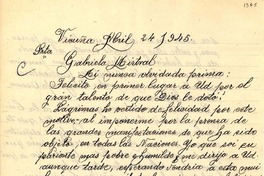 1305
Vicuña Abril 24 1945
Srta
Gabriela Mistral
Mi nunca olvidada prima:
Felicito en primer lugar a Ud por el
gran talento de que Dios le dotó!
Lágrimas he vertido de felicidad por este
motivo, al imponerme por la prensa de
las grandes manifestaciones de que ha sido
objeto en todas las Naciones. Yo que soy su
pariente mas pobre y humilde me dirijo a Ud
aunque tarde, esperando tendría esta mui